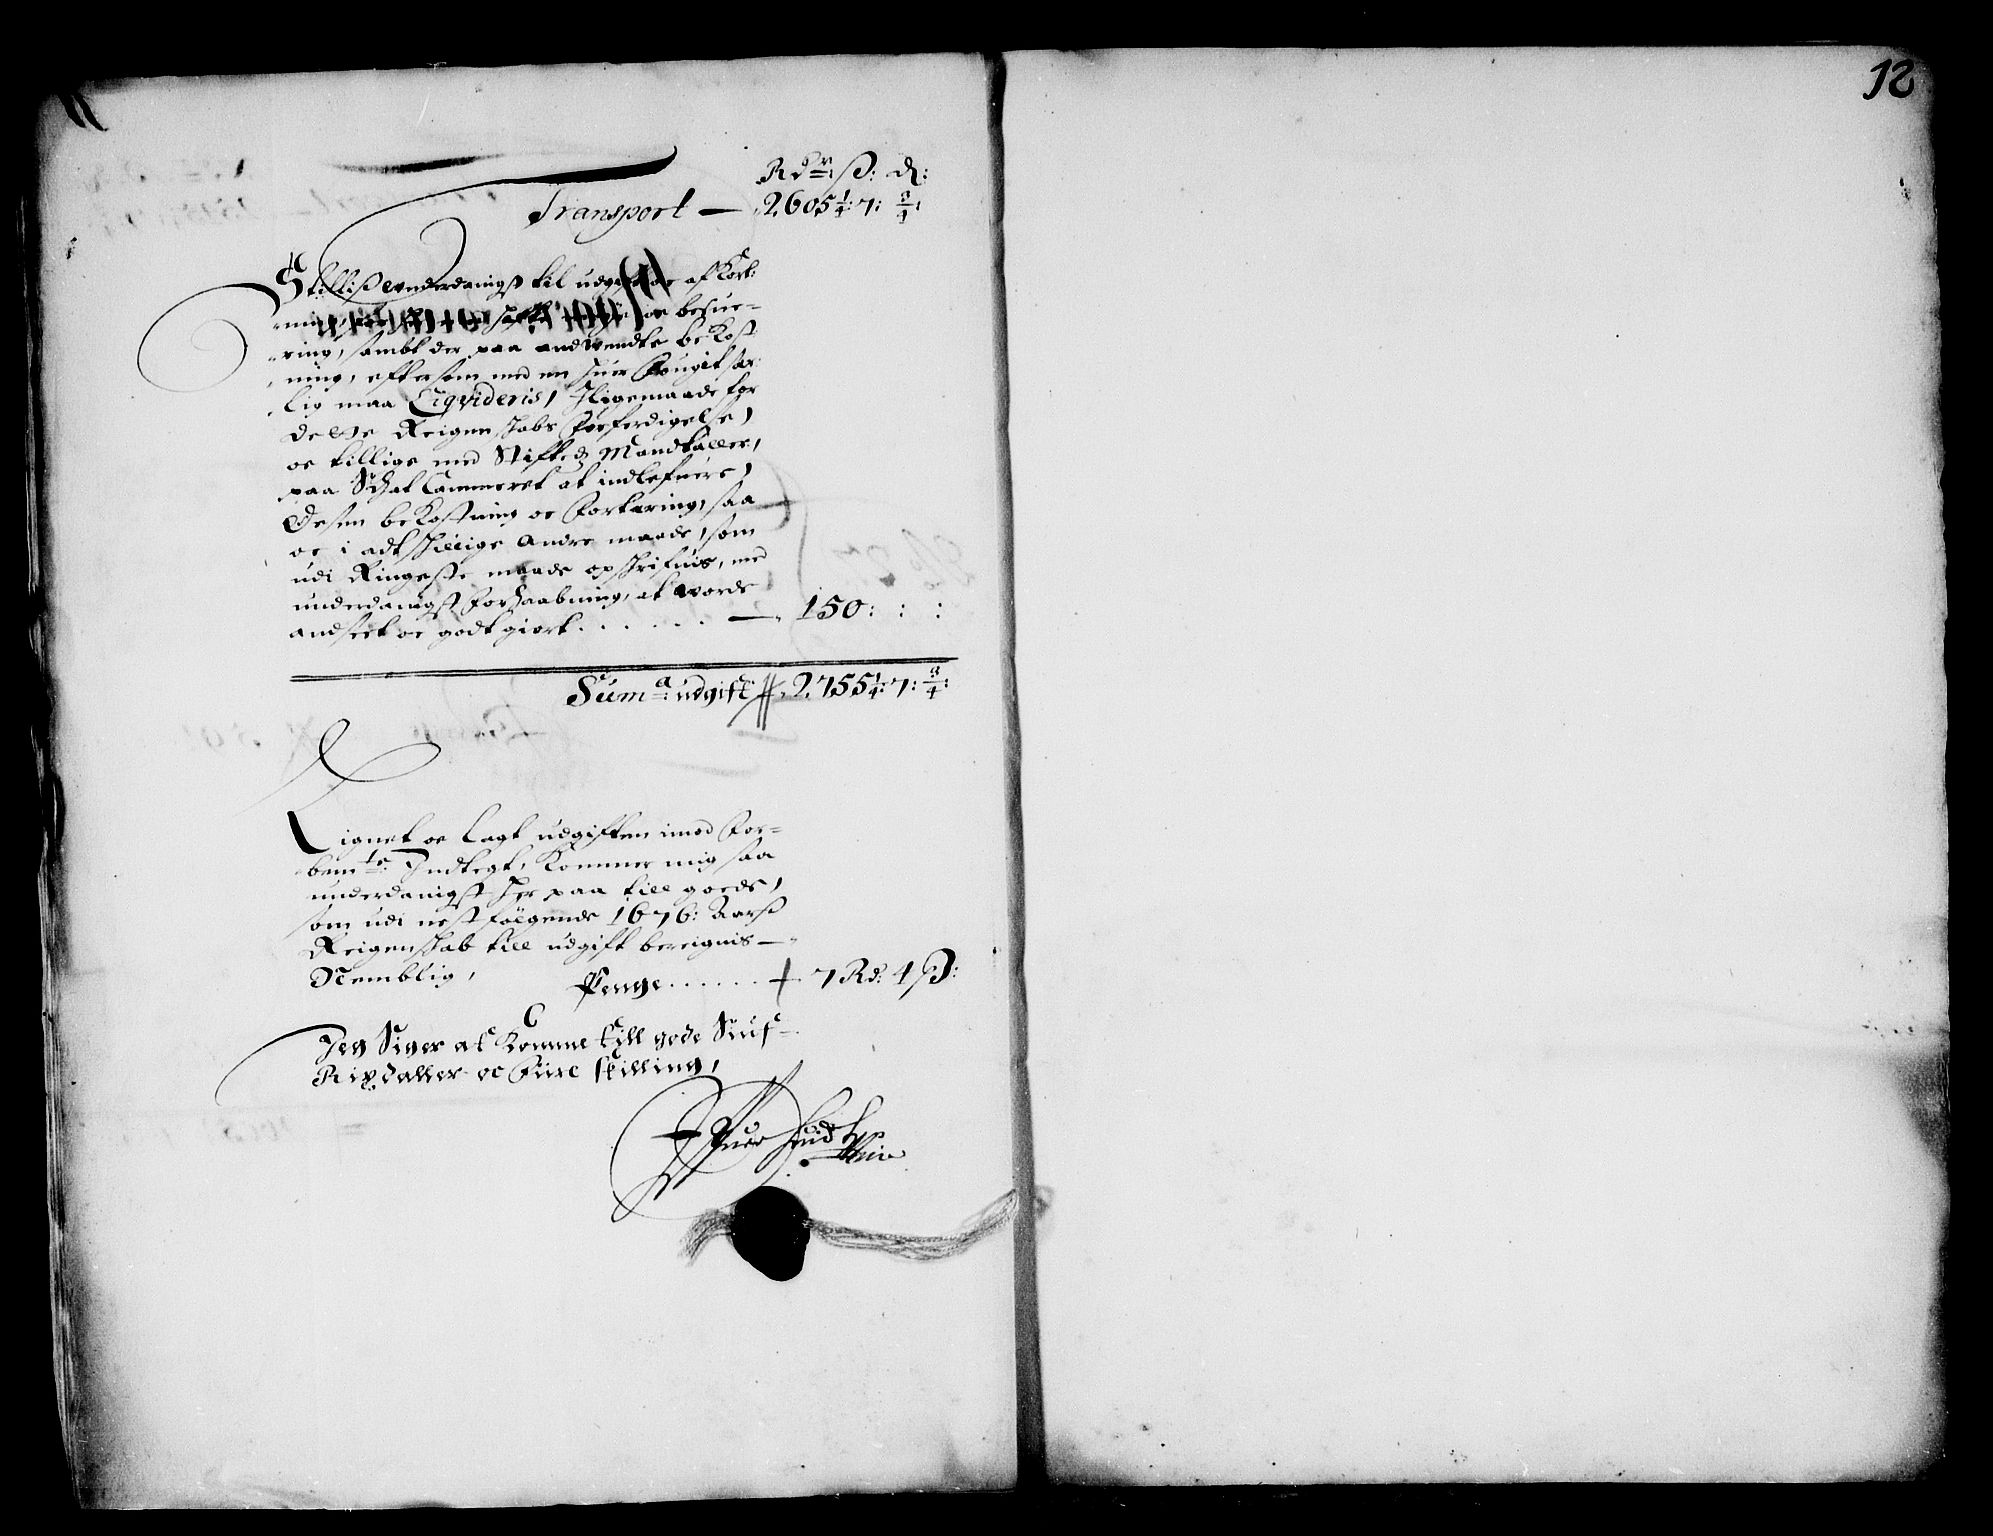 11
12
Rdr: ß: d:
Transport — 2605¼: 7: ¾:
Stillis underdanigst til udgift for af Kort:
ning,
oc besue=
ring, sambt der paa andwendte bekost
ning, eftersom med en huer Fougit sær
lig maa Liqvideris, Iligemaade for
dette Reigenskabs Forferdigelse,
oc tillige med Stiftedz Mandtaller,
paa Schat Cammeret at indlefuere,
Desen bekostning oc Fortæring, saa
oc i adtskillige Andre maade, som
udi Ringeste maade opskrifuis, med
underdanigst Forhaabning, at worde
andseet oc godt giort . . . . . . — 150: : :
Suma: udgift 2755¼: 7: ¾:
Lignet oc Lagt udgiften imod For=
bemte: Indtegt, Kommer mig saa
underdanigst her paa till goede,
som udi nestfölgende 1676: Aarß
Reigenskab till udgift bereignis —
Nemblig,
Penge . . . . . . 7 Rd: 4 ß:
Jeg Siger at komme till gode Siuf
Rixdaller oc Fiire skilling,